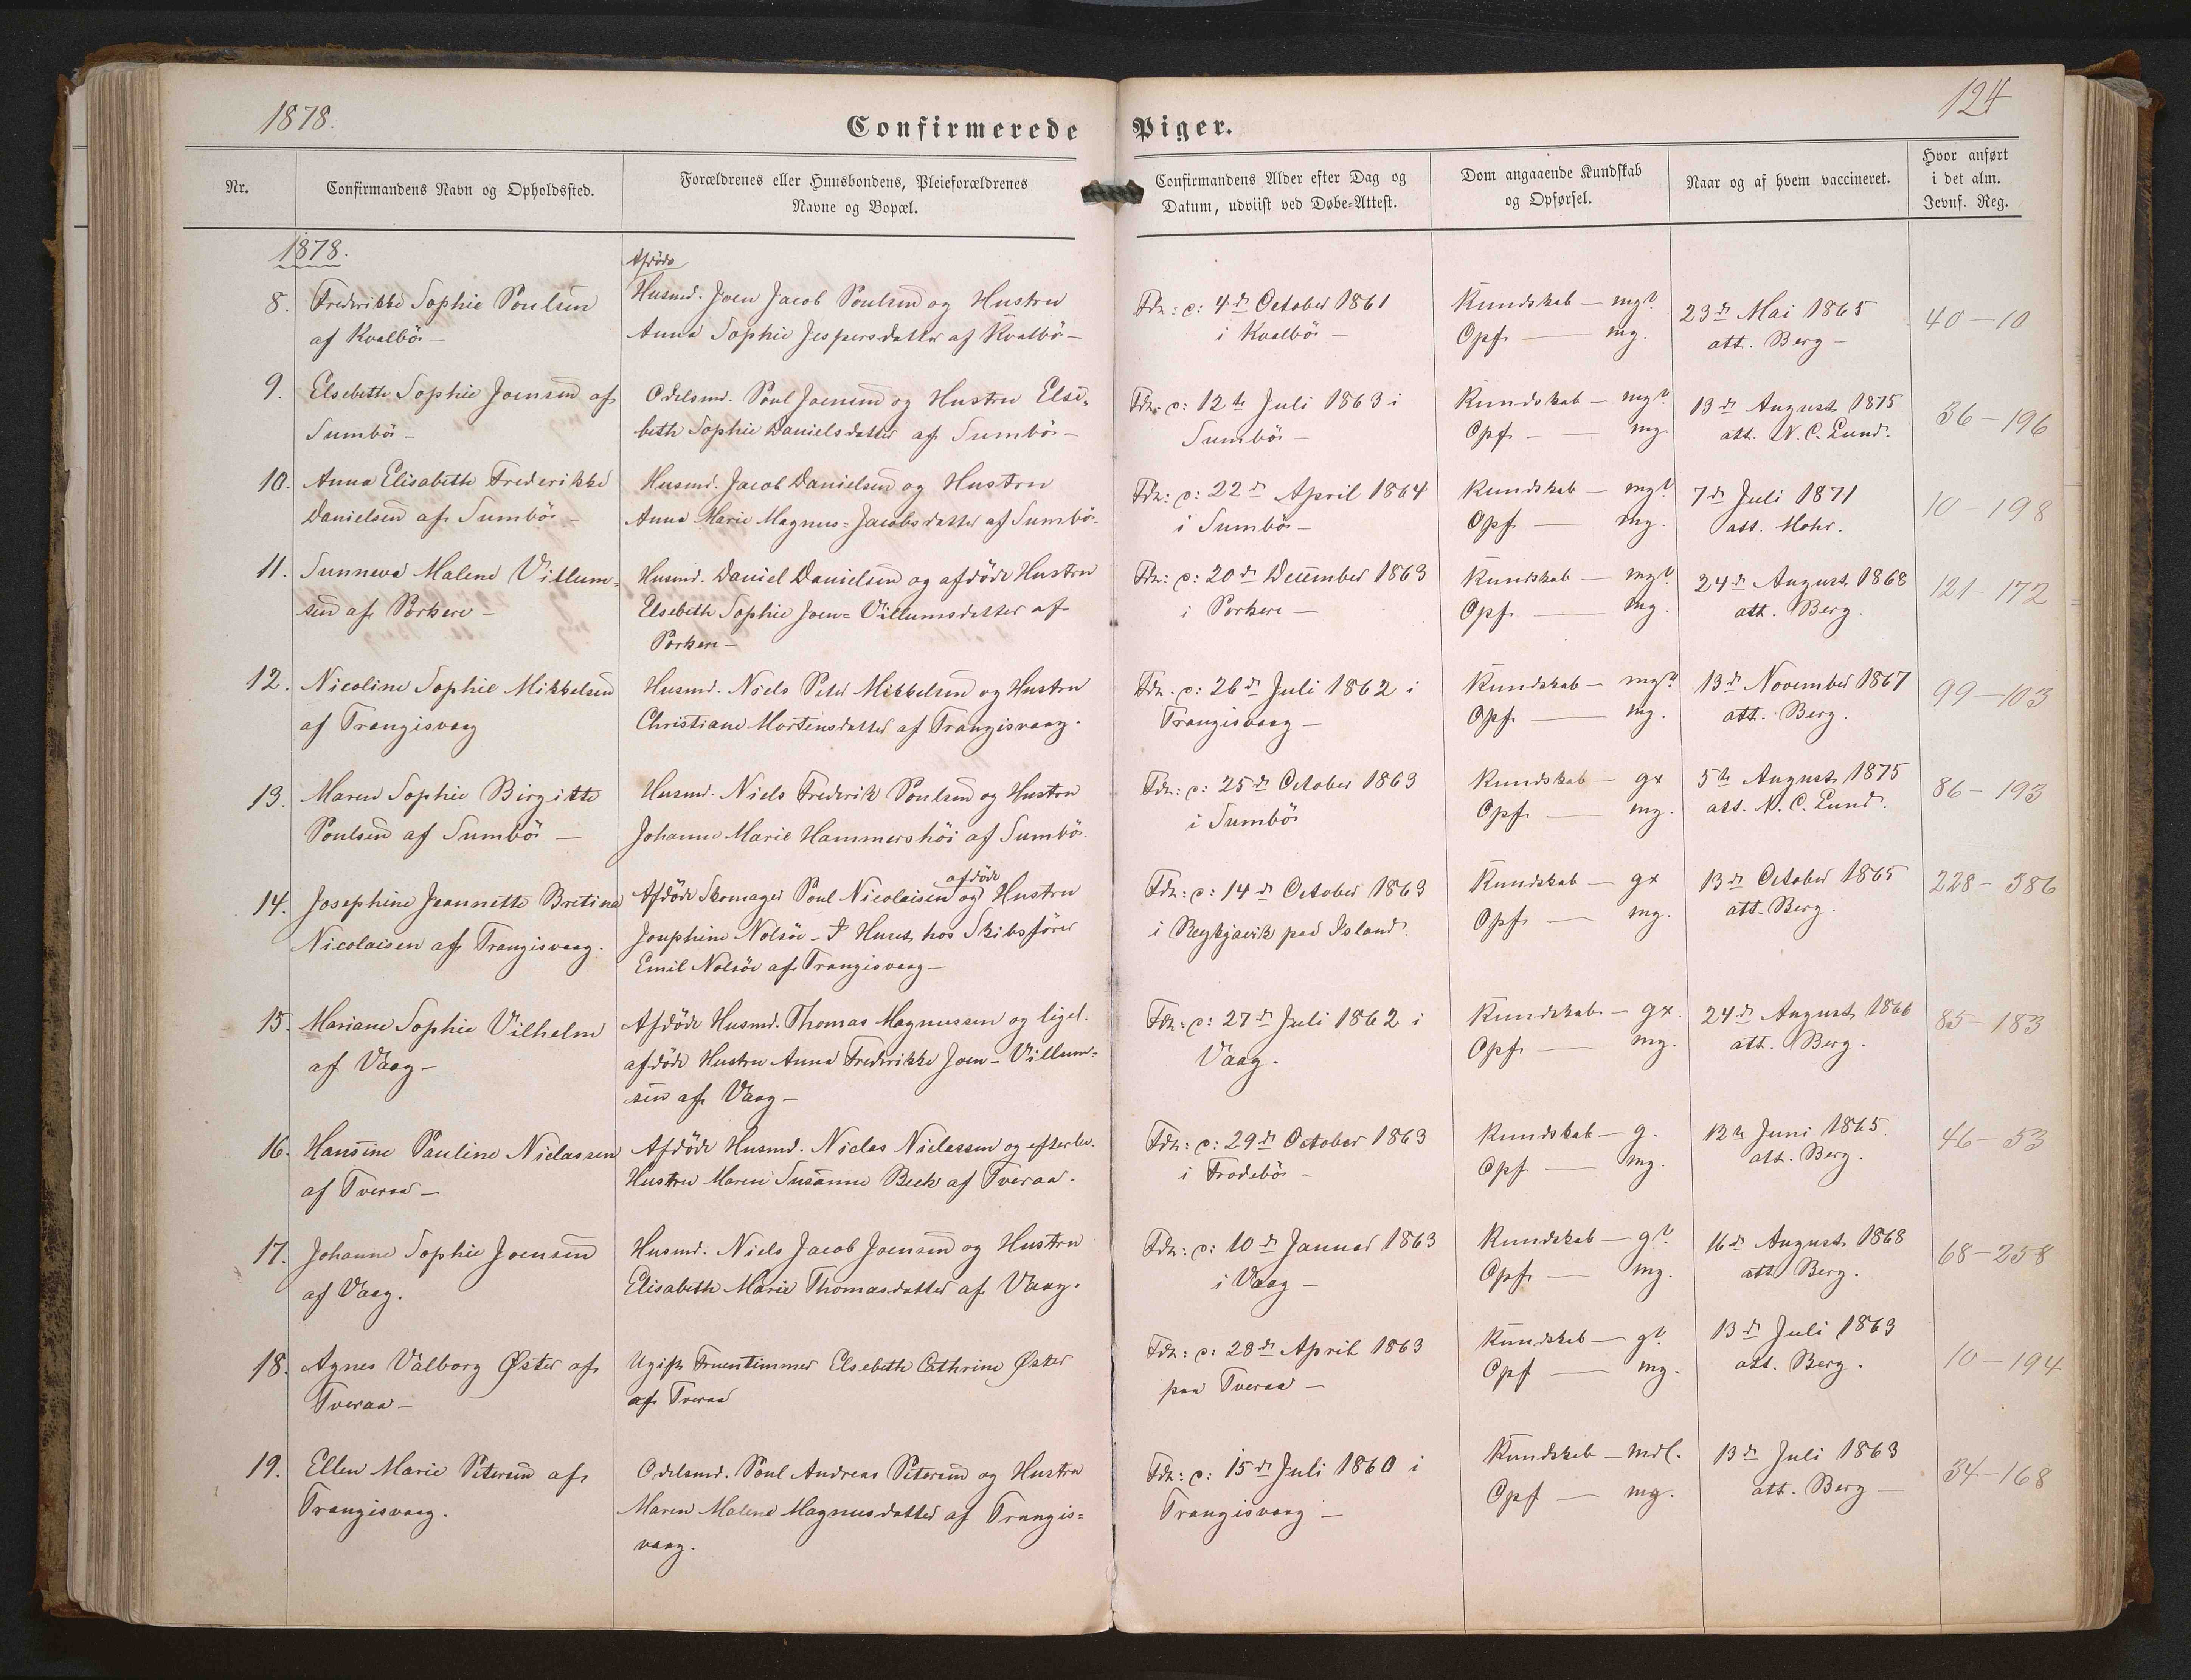 1878.
Confirmerede Piger.
124
Nr.
Confirmandens Navn og Opholdssted.
Forældrenes eller Huusbondens, Pleieforældrenes
Navne og Bopæl.
Confirmandens Alder efter Dag og
Datum, udviist ved Døbe-Attest.
Dom angaaende Kundskab
og Opførsel.
Naar og af hvem vaccineret.
Hvor anført
i det alm.
Jevnf. Reg.
1878.
8.
Frederikke Sophie Poulsen
af Kvalbö –
Afdöde
Husmd. Joen Jacob Poulsen og Hustru
Anna Sophie Jespersdatter af Kvalbö –
Fdn: c: 4de October 1861
i Kvalbö –
Kundskab – mg?
Opf. — mg.
23de Mai 1865
att. Berg –
40 – 10
9.
Elsebeth Sophie Joensen af
Sumbö –
Odelsmd. Poul Joensen og Hustru Else-
beth Sophie Danielsdatter af Sumbö –
Fdn: c: 12te Juli 1863 i
Sumbö –
Kundskab – mg?
Opf. — mg.
13de August 1875
att. N. C. Lund.
36 – 196
10.
Anna Elisabeth Frederikke
Danielsen af Sumbö –
Husmd. Jacob Danielsen og Hustru
Anna Marie Magnus = Jacobsdatter af Sumbö.
Fdn: c: 22de April 1864
i Sumbö –
Kundskab – mg?
Opf. — mg.
7de Juli 1871
att. Mohr.
10 – 198
11.
Sunneva Malene Villum-
sen af Porkere –
Husmd. Daniel Danielsen og afdöde Hustru
Elsebeth Sophie Joen = Villumsdatter af
Porkere –
Fdn: c: 20de December 1863
i Porkere –
Kundskab – mg?
Opf. — mg.
24de August 1868
att. Berg.
121 – 172
12.
Nicoline Sophie Mikkelsen
af Trangisvaag
Husmd. Niels Peter Mikkelsen og Hustru
Christiane Mortensdatter af Trangisvaag.
Fdn: c: 26de Juli 1862 i
Trangisvaag –
Kundskab – mg?
Opf. — mg.
13de November 1867
att. Berg.
99 – 103
13.
Maren Sophie Birgitte
Poulsen af Sumbö –
Husmd. Niels Frederik Poulsen og Hustru
Johanne Marie Hammershöi af Sumbö.
Fdn: c: 25de October 1863
i Sumbö
Kundskab – gx
Opf. — mg.
5te August 1875
att. N. C. Lund.
86 – 193
14.
Josephine Jeannette Bretine
Nicolaisen af Trangisvaag.
Afdöde Skomager Poul Nicolaisen og afdöde Hustru
Josephine Nolsöe – I Huset hos Skibsförer
Emil Nolsöe af Trangisvaag –
Fdn: c: 14de October 1863
i Reykjavik paa Island.
Kundskab – gx
Opf. — mg.
13de October 1865
att. Berg.
228 – 386
15.
Mariane Sophie Vilhelm
af Vaag –
Afdöde Husmd. Thomas Magnussen og ligel.
afdöde Hustru Anna Frederikke Joen – Villum=
sen af Vaag –
Fdn: c: 27de Juli 1862 i
Vaag.
Kundskab – gx.
Opf. — mg.
24de August 1866
att. Berg.
85 – 183
16.
Hansine Pauline Niclassen
af Tveraa –
Afdöde Husmd. Niclas Niclassen og efterlev.
Hustru Maren Susanne Beck af Tveraa.
Fdn: c: 29de October 1863
i Frodebö –
Kundskab – g.
Opf — mg.
12te Juni 1865.
att. Berg.
46 – 53
17.
Johanne Sophie Joensen
af Vaag.
Husmd. Niels Jacob Joensen og Hustru
Elisabeth Marie Thomasdatter af Vaag.
Fdn: c: 10de Januar 1863
i Vaag –
Kundskab – g?
Opf. — mg.
16de August 1868
att. Berg.
68 – 258
18.
Agnes Valborg Øster af
Tveraa –
Ugift Fruentimmer Elsebeth Cathrine Øster
af Tveraa
Fdn: c: 28de April 1863
paa Tveraa –
Kundskab – g?
Opf — mg.
13de Juli 1863
att. Berg.
10 – 194
19.
Ellen Marie Petersen af
Trangisvaag.
Odelsmd. Poul Andreas Petersen og Hustru
Maren Malene Magnusdatter af Trangis=
vaag.
Fdn: c: 15de Juli 1860 i
Trangisvaag –
Kundskab – mdl.
Opf — mg.
13de Juli 1863
att. Berg –
34 – 168